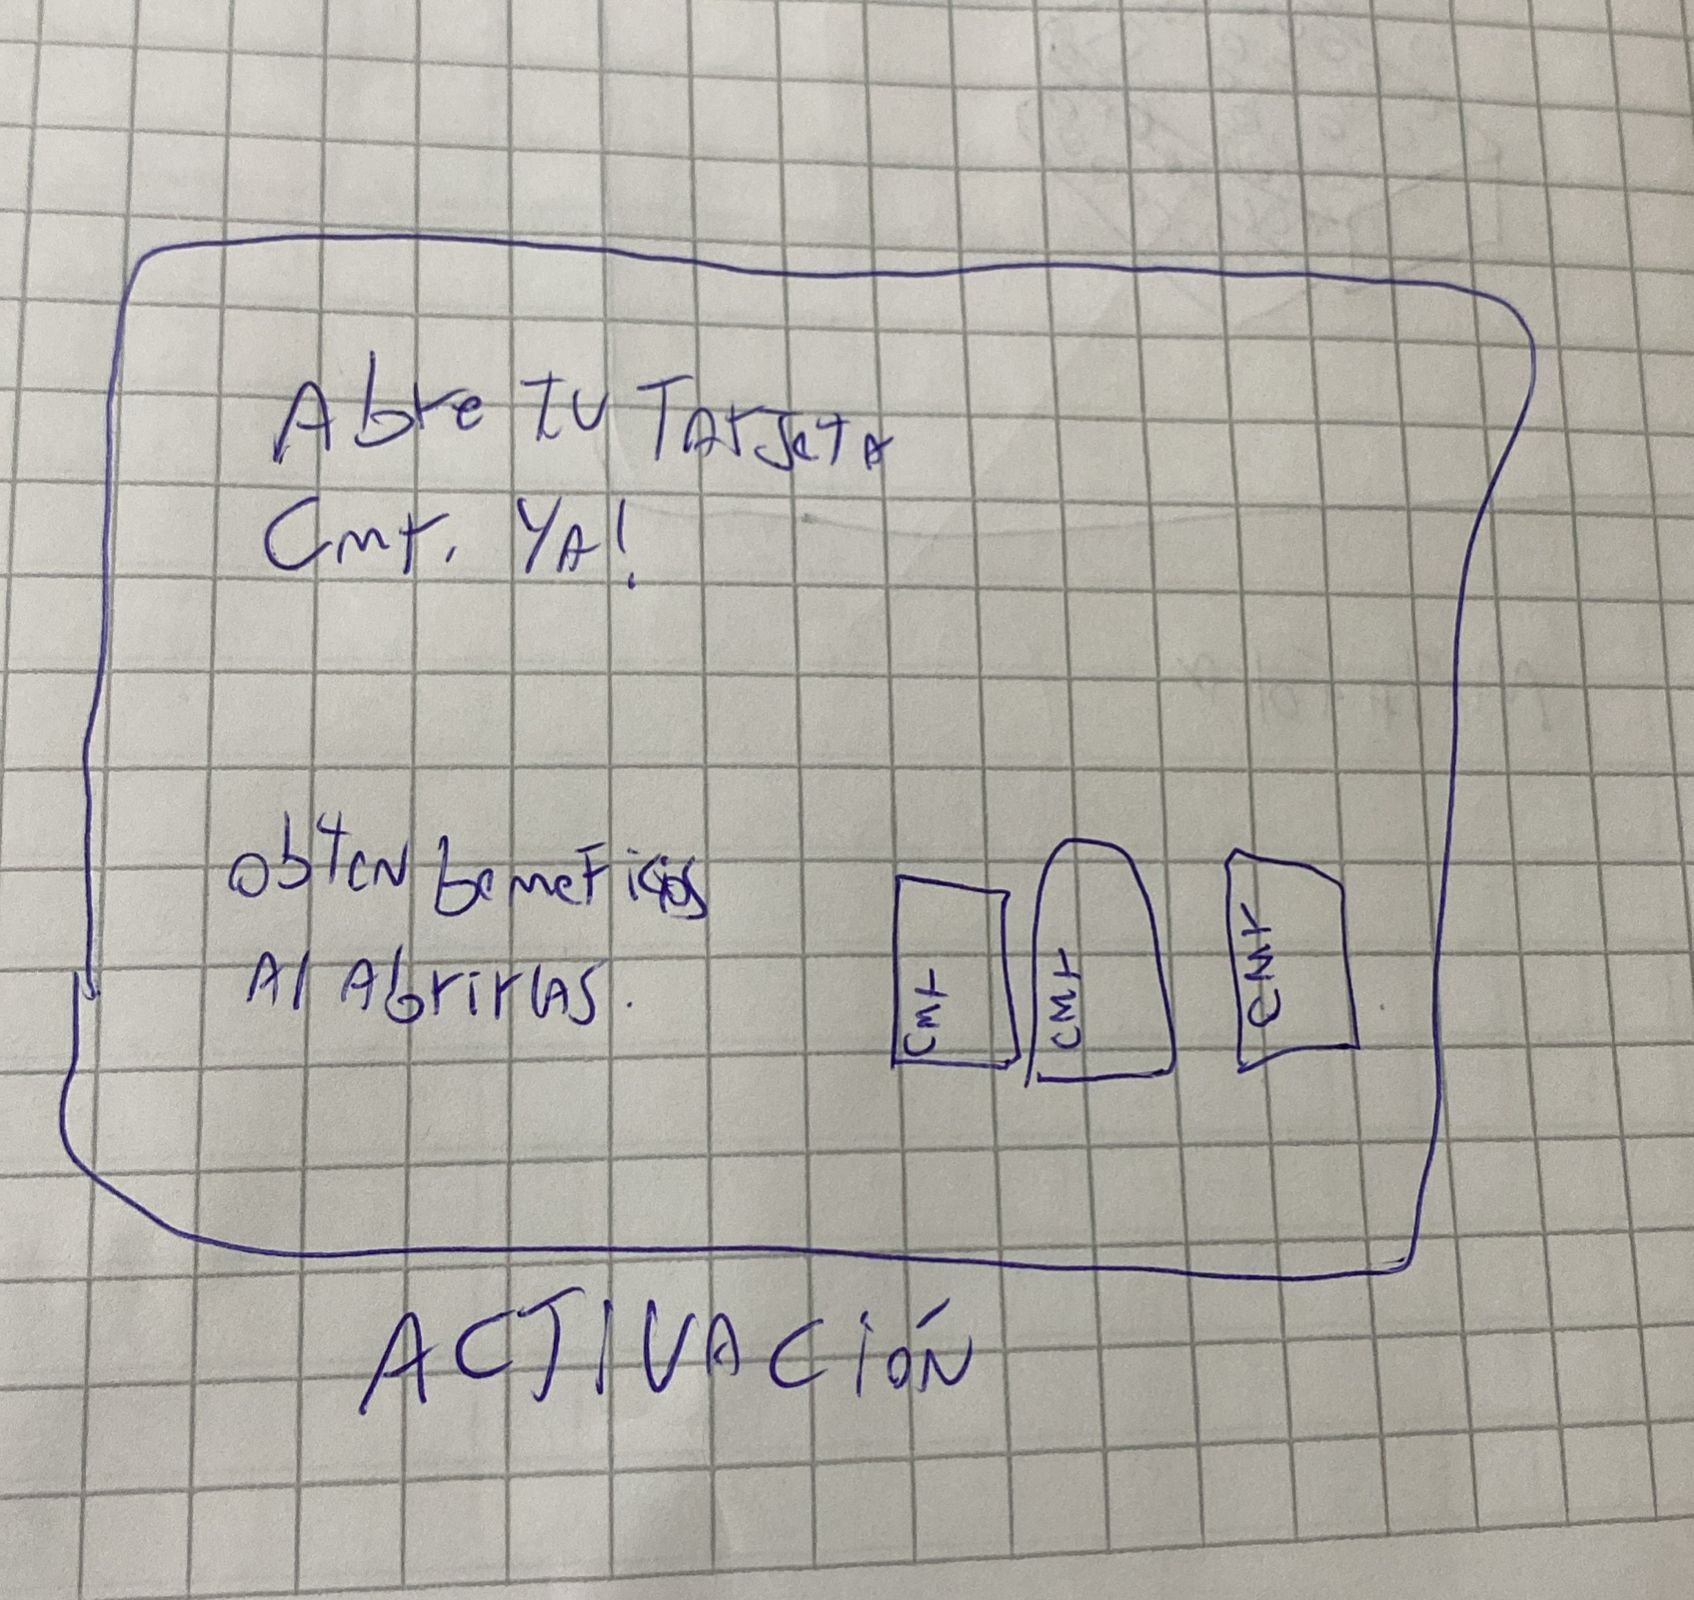 Abre tu Tarjeta
Cmr. YA!
Obten beneficios
Al Abrirlas.
CMR
CMR
CMR
ACTIVACIÓN